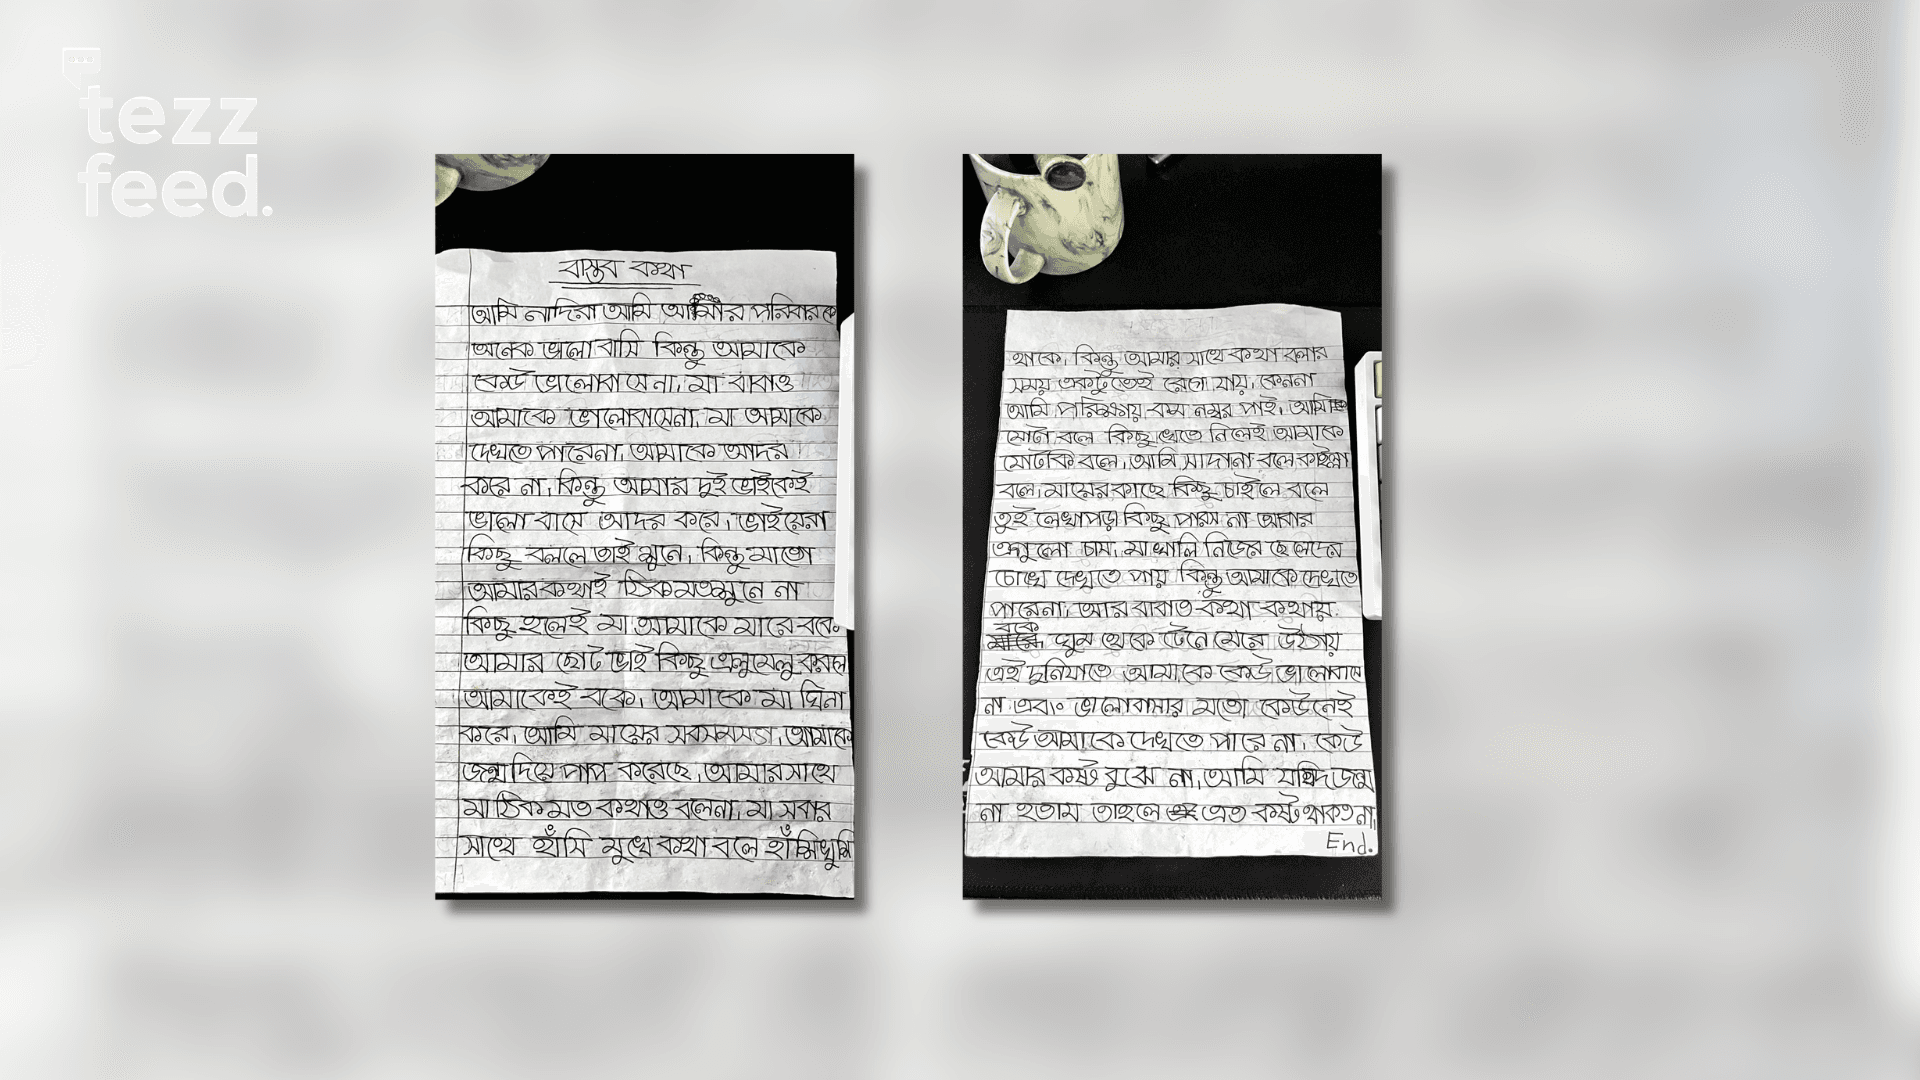 tezz
feed.
বাস্তব কথা
আমি নাদিরা আমি আমার পরিবারকে
অনেক ভালোবাসি কিন্তু আমাকে
কেউ ভালোবাসেনা, মা বাবাও
আমাকে ভালোবাসেনা, মা আমাকে
দেখতে পারেনা, আমাকে আদর
করে না, কিন্তু আমার দুই ভাইকেই
ভালো বাসে আদর করে, ভাইয়েরা
কিছু বললে তাই শুনে, কিন্তু মাতো
আমার কথাই ঠিকমতশুনে না
কিছু হলেই মা আমাকে মারে বকে
আমার ছোট ভাই কিছু এলুমেলু করলে
আমাকেই বকে, আমাকে মা ঘিনা
করে, আমি মায়ের আমাকে
জন্ম দিয়ে পাপ করেছে, আমার সাথে
মা ঠিক মত কথাও বলেনা, মা সবার
সাথে হাঁসি মুখে কথা বলে হাঁসিখুসি
থাকে, কিন্তু আমার সাথে কথা বলার
সময় একটুতেই রেগে যায়, কেননা
আমি পরিক্ষায় কম নম্বর পাই, আমি
মোটা বলে কিছু খেতে নিলেই আমাকে
মোটকি বলে, আমি সাদানা বলে কাইল্লা
বলে, মায়ের কাছে কিছু চাইলে বলে
তুই লেখাপড়া কিছু পারস না আবার
এগুলো চাস, মা খালি নিজের ছেলেদের
চোখে দেখতে পায় কিন্তু আমাকে দেখতে
পারেনা, আর বাবাও কথা কথায়
বকে
ঘুম থেকে টেনে মেরে উঠায়
এই দুনিয়াতে আমাকে কেউ ভালোবাসে
না এবং ভালোবাসার মতো কেউনেই
কেউ আমাকে দেখতে পারে না, কেউ
আমার কষ্ট বুঝে না, আমি যদি জন্ম
না হতাম তাহলে এত কষ্ট থাকত না,
End.